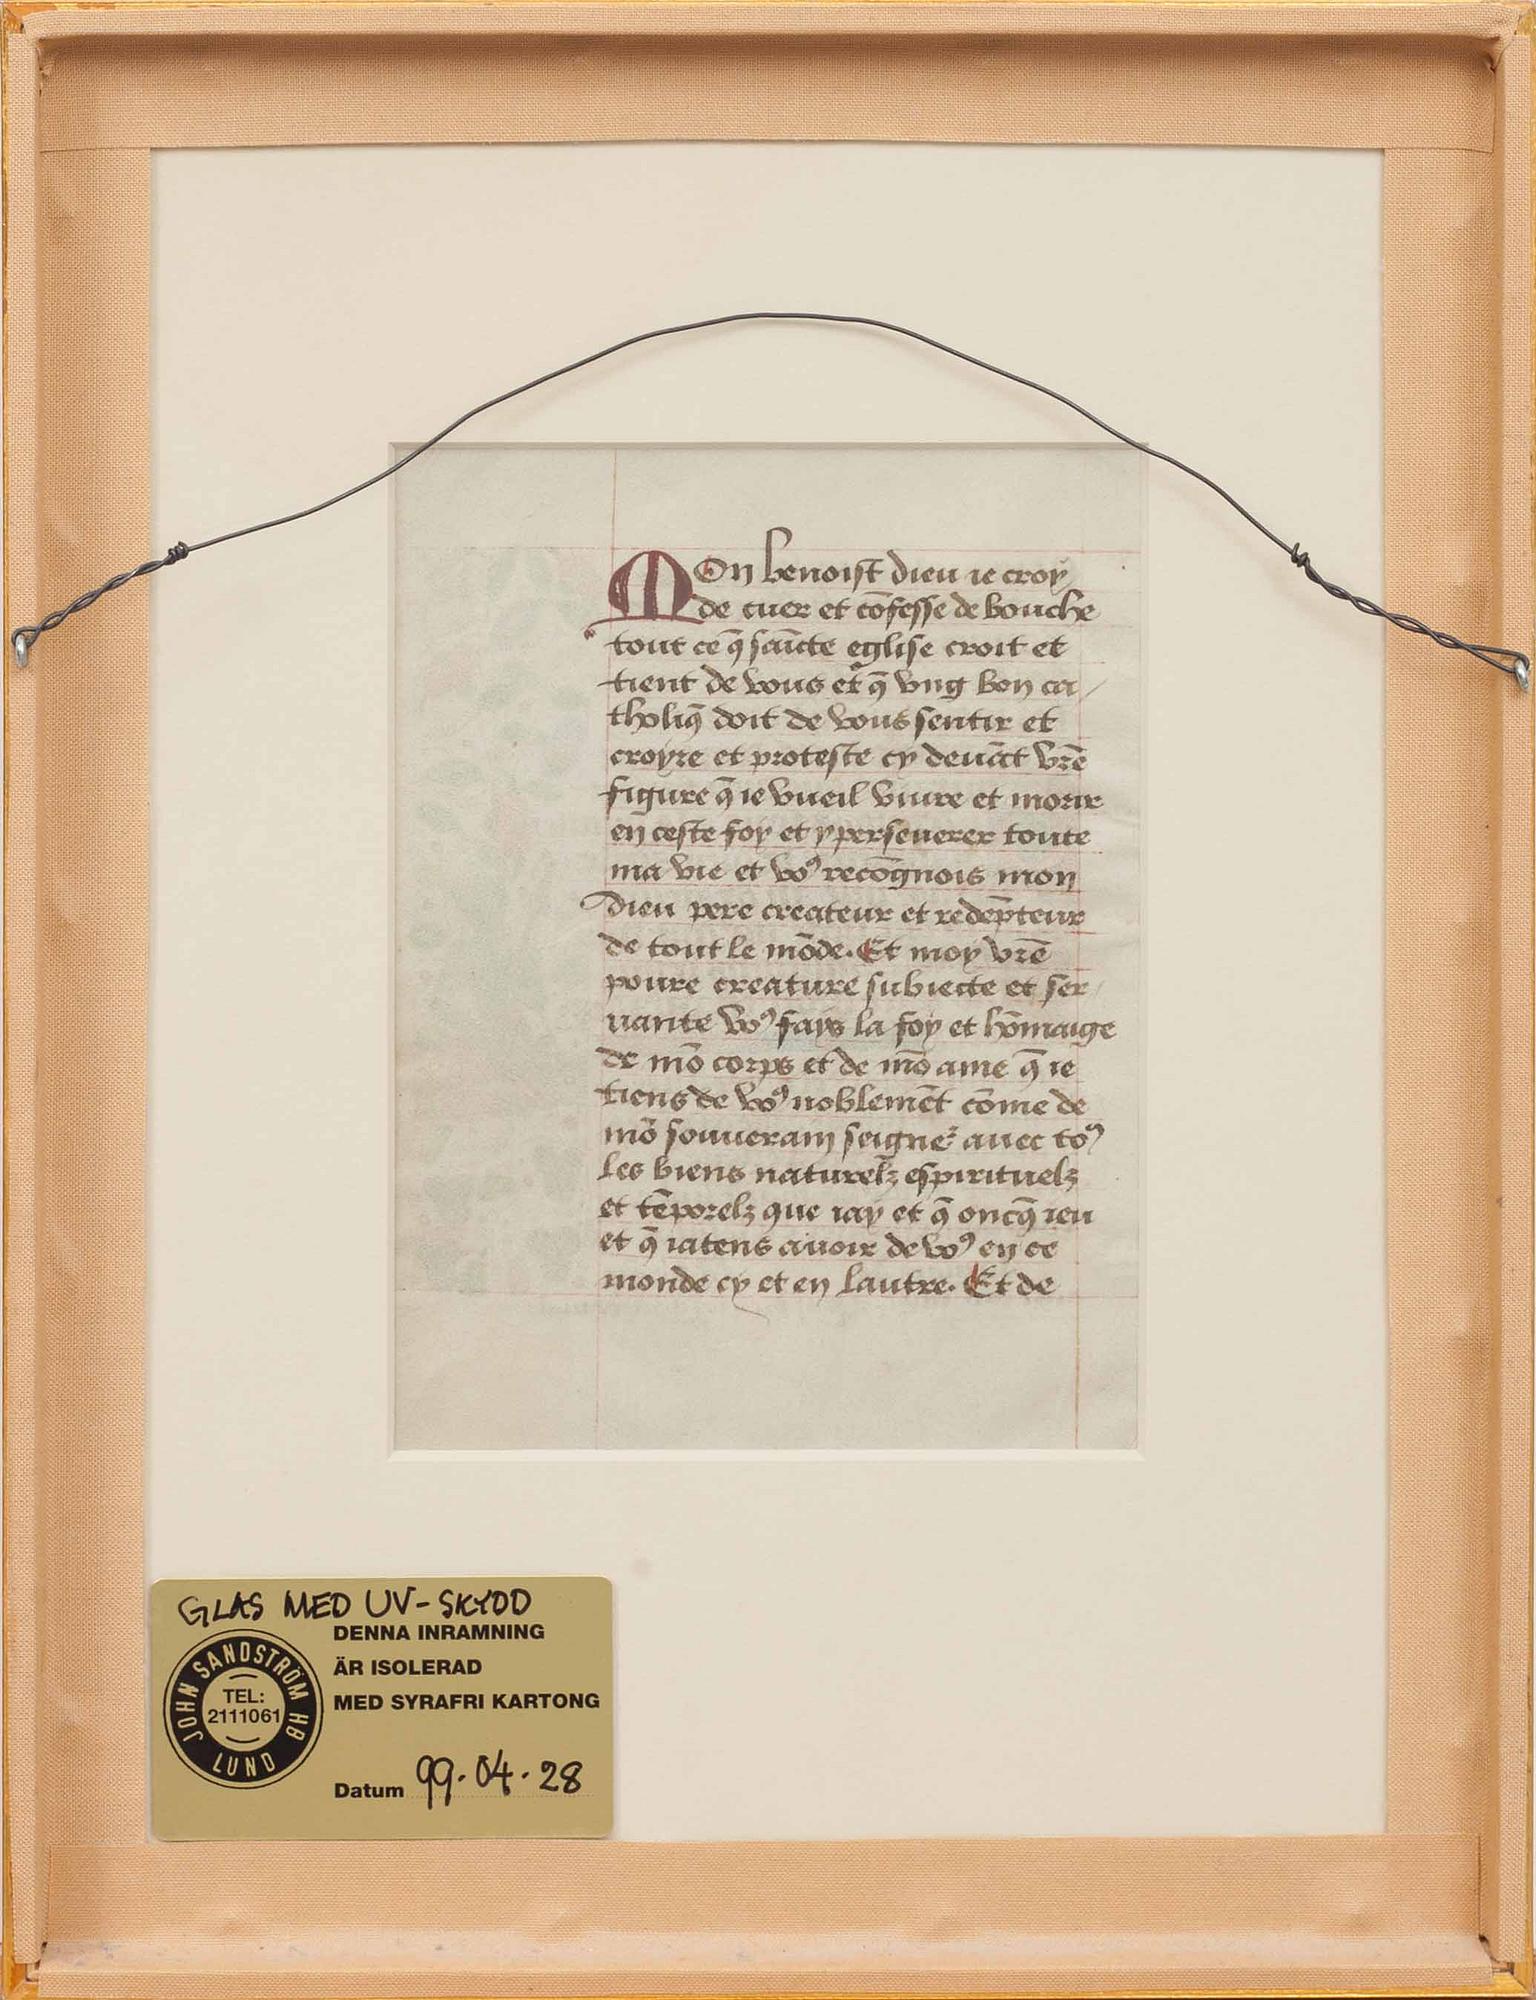 Mon benoist dieu ie croy
de cuer et cōfesse de bouche
tout ce q̄ sāicte eglise croit et
tient de vous et q̄ vng bon ca
tholiq̄ doit de vous sentir et
croyre et proteste cy deuāt vr̄e
figure q̄ ie vueil viure et morir
en ceste foy et y perseuerer toute
ma vie et voꝰ recōgnois mon
dieu pere createur et redēpteur
de tout le mōde. Et moy vr̄e
poure creature subiecte et ser
uante voꝰ fays la foy et hōmaige
de mō corps et de mō ame q̄ ie
tiens de voꝰ noblemēt cōme de
mō souuerain seigne᷑ auec toꝰ
les biens naturelz espirituelz
et tēporelz que iay et q̄ oncq̄ ieu
et q̄ iatens auoir de voꝰ en ce
monde cy et en lautre. Et de
GLAS MED UV-SKYDD
DENNA INRAMNING
ÄR ISOLERAD
MED SYRAFRI KARTONG
JOHN SANDSTRÖM HB
TEL:
2111061
LUND
Datum 99-04-28